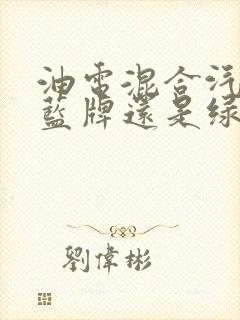 油電混合汽
藍牌還是綠
劉偉彬